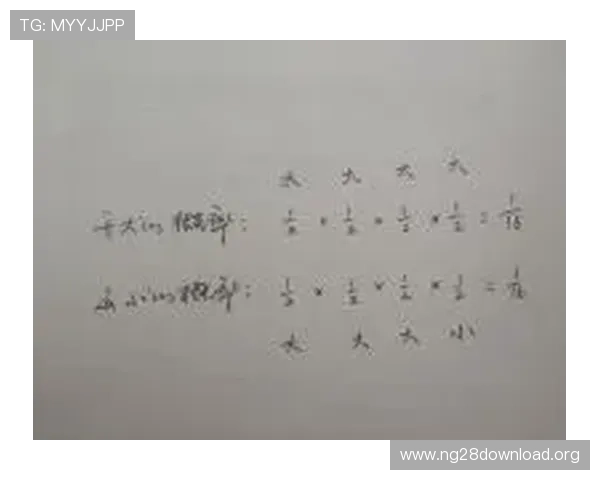 TG: MYYJJPP
大 大 大 大
开大的概率: 1/2 × 1/2 × 1/2 × 1/2 = 1/16
开小的概率: 1/2 × 1/2 × 1/2 × 1/2 = 1/16
大 大 大 小
www.ng28download.org